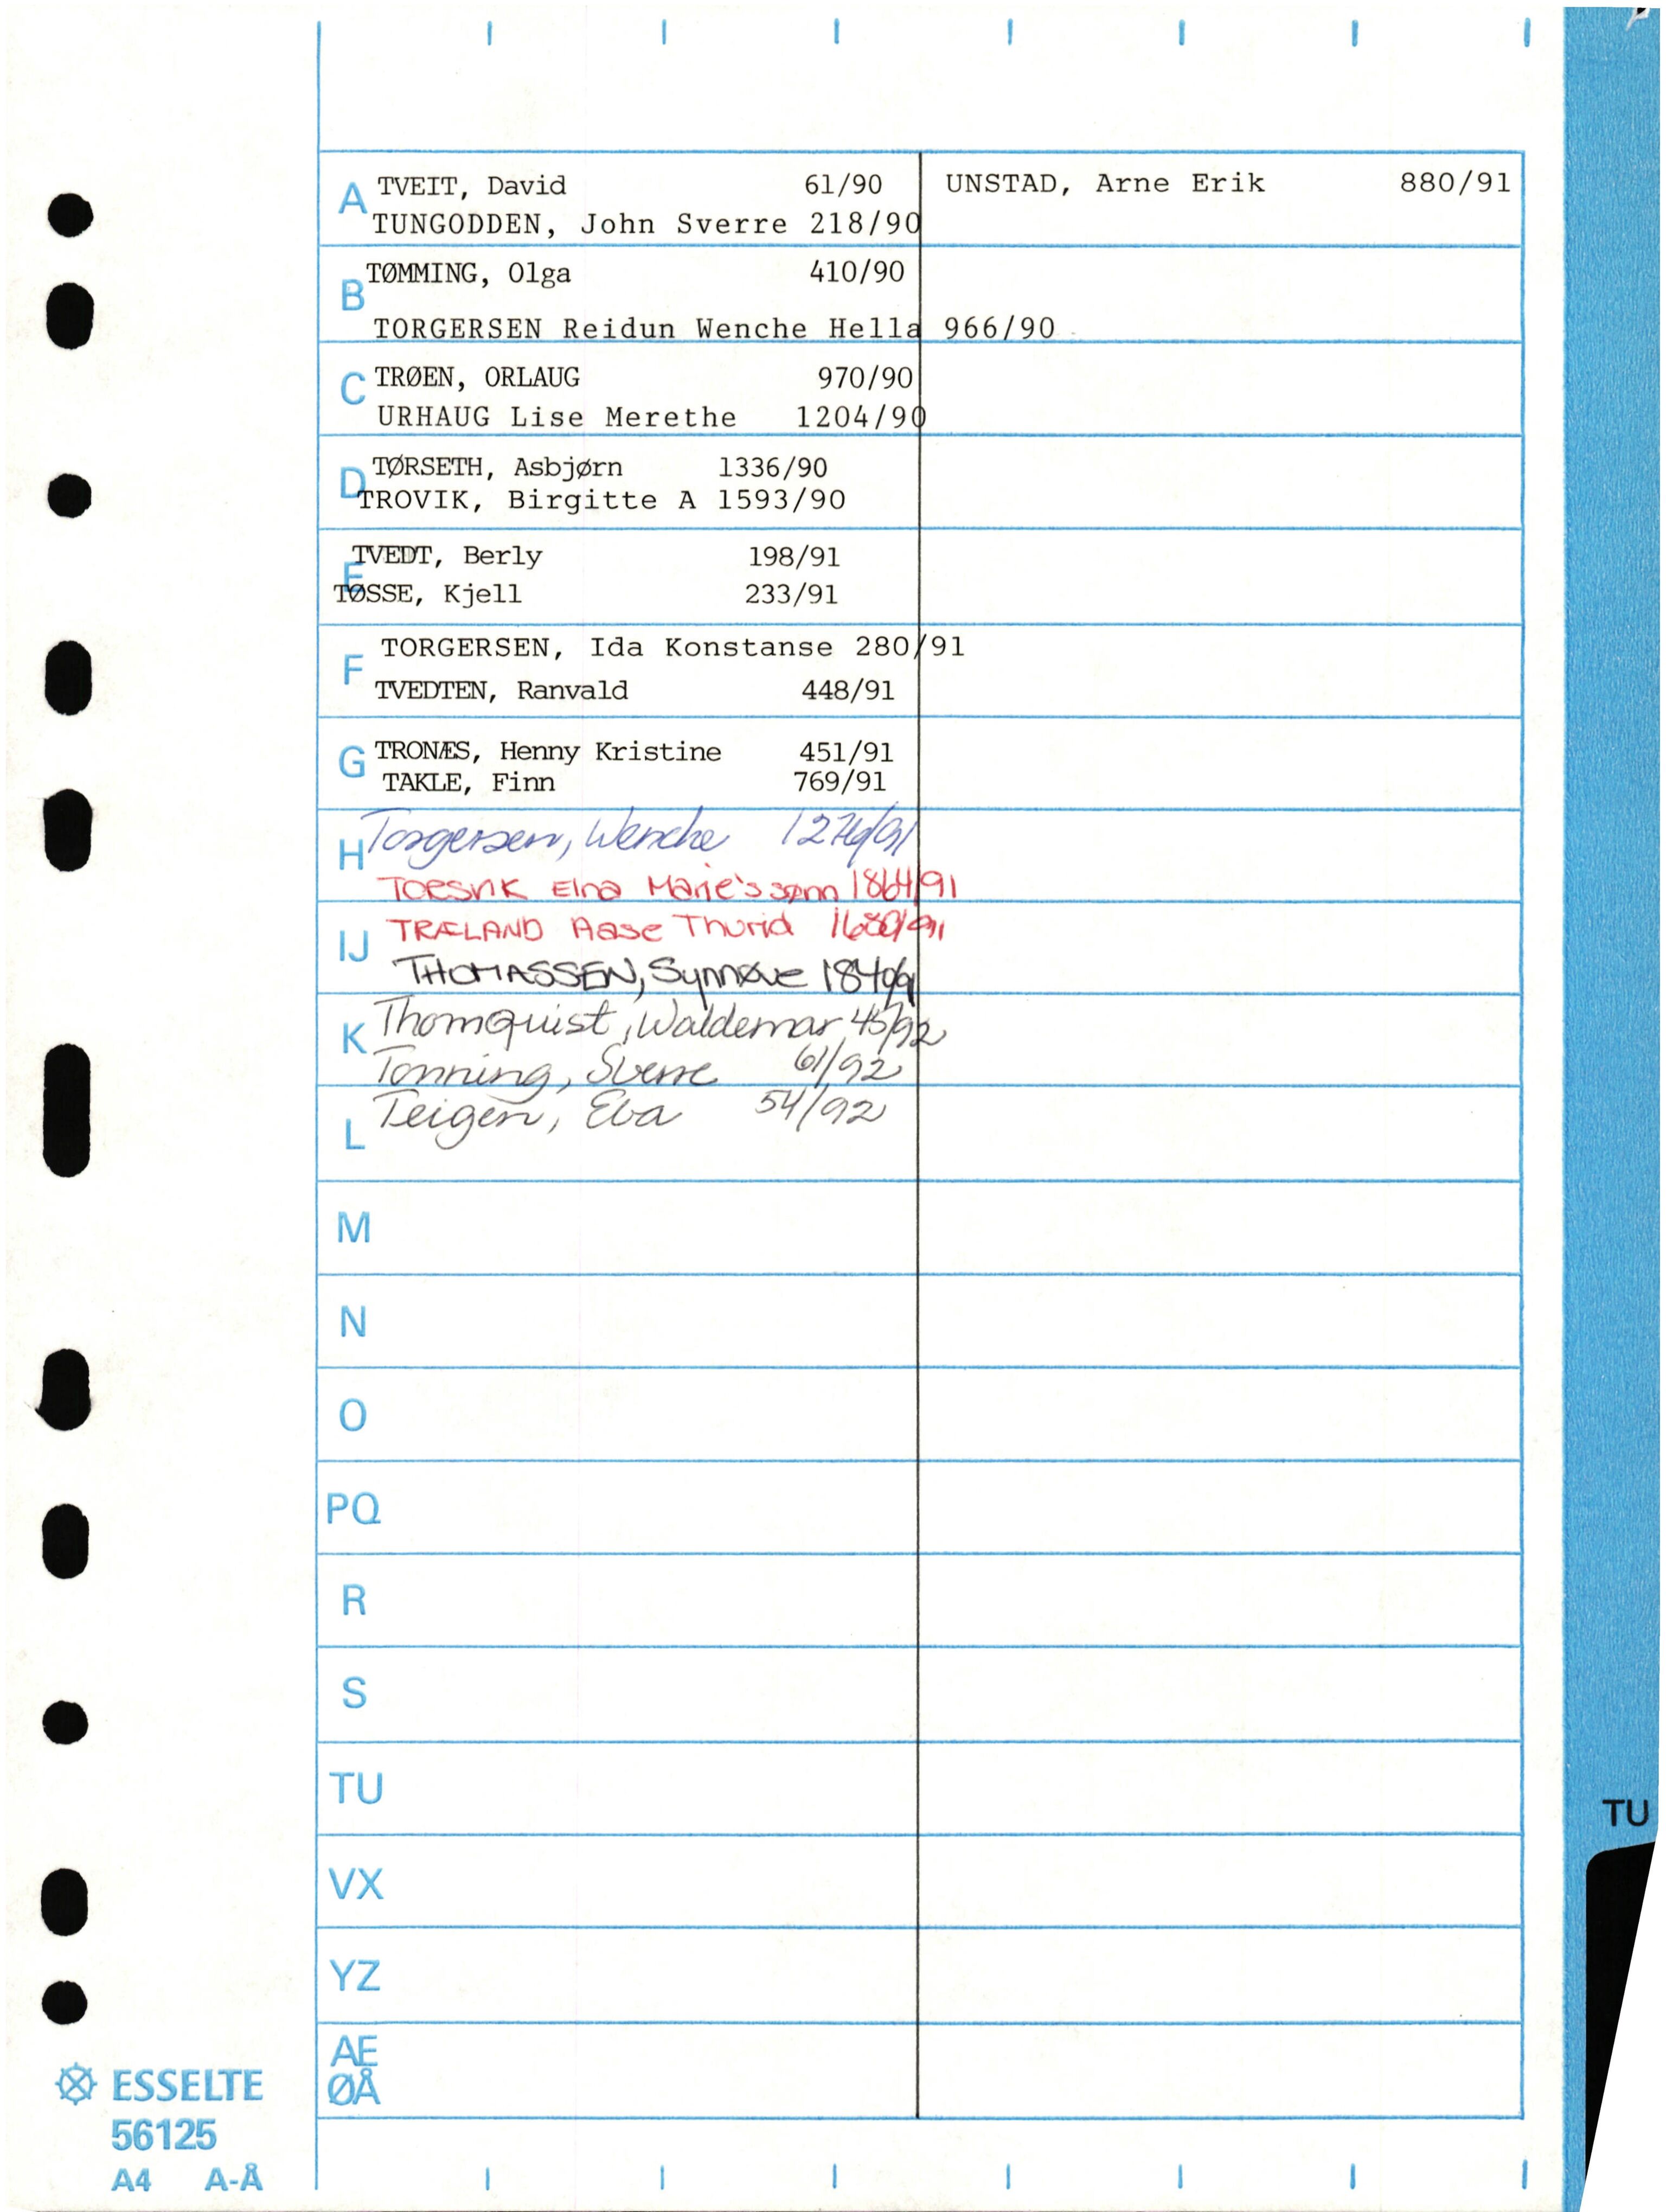 A TVEIT, David 61/90 UNSTAD, Arne Erik 880/91
TUNGODDEN, John Sverre 218/90
B TØMMING, Olga 410/90
TORGERSEN Reidun Wenche Hella 966/90
C TRØEN, ORLAUG 970/90
URHAUG Lise Merethe 1204/90
D TØRSETH, Asbjørn 1336/90
TROVIK, Birgitte A 1593/90
E TVEDT, Berly 198/91
TØSSE, Kjell 233/91
F TORGERSEN, Ida Konstanse 280/91
TVEDTEN, Ranvald 448/91
G TRONÆS, Henny Kristine 451/91
TAKLE, Finn 769/91
H Torgersen, Wenche
TORSVIK Elna Marie's sønn 1864/91
IJ TRÆLAND Aase Thurid 1680/91
THOMASSEN, Synnøve
K Thomquist, Waldemar 45/92
Tonning, Sverre 61/92
L Teigen, Eva 54/92
M
N
O
PQ
R
S
TU
TU
VX
YZ
AE
ØÅ
ESSELTE
56125
A4 A-Å